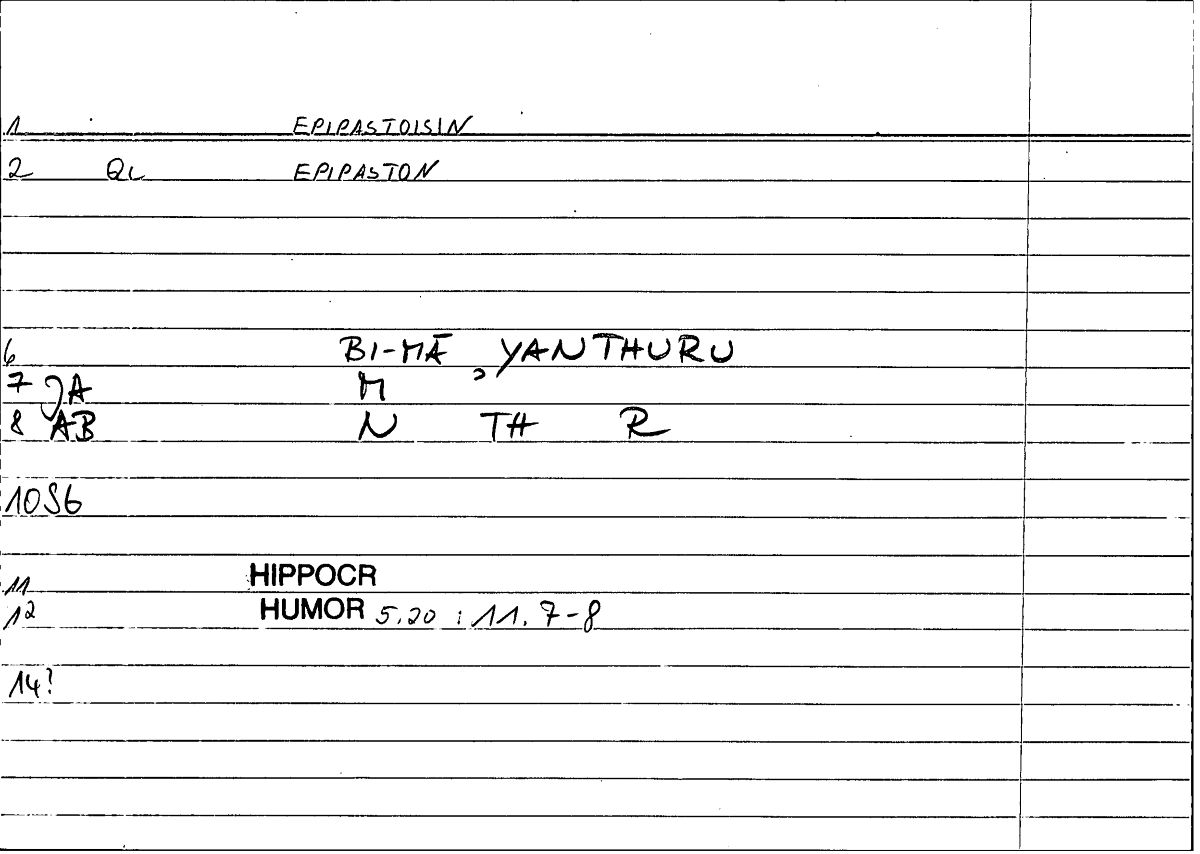 1 EPIPASTOISIN
2 QL EPIPASTON
6 BI-MĀ YANTHURU
7 JA M
8 AB N TH R
10 S6
11 HIPPOCR
12 HUMOR 5,20 : 11. 7-8
14?